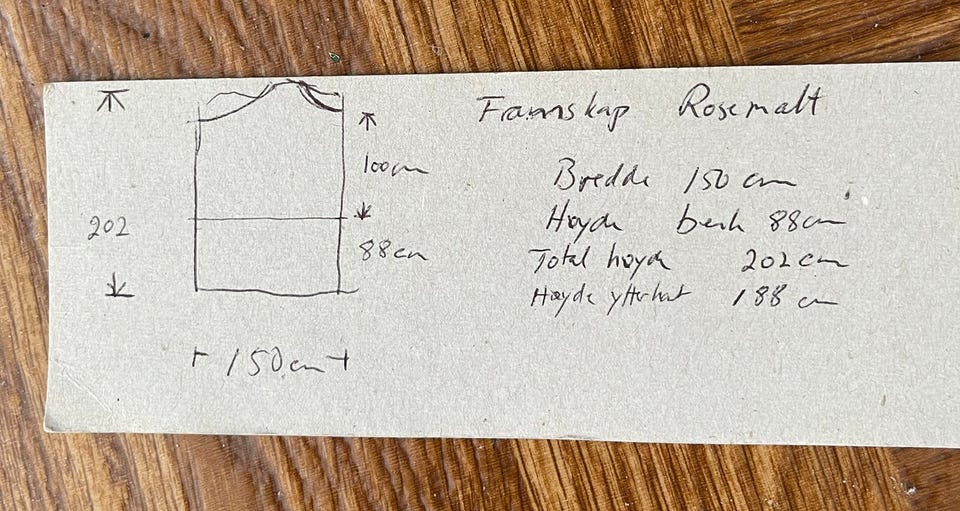 Framskap Rosemalt
100cm
Bredde 150 cm
202
Høyde benk 88cm
88cm
Total høyde 202 cm
Høyde ytterkant 188 cm
150cm